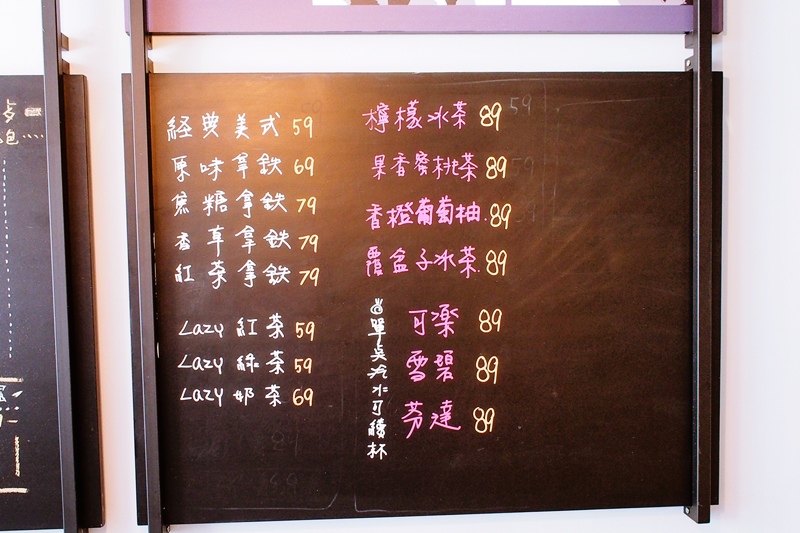 経典美式 59
原味拿鉄 69
焦糖拿鉄 79
香草拿鉄 79
紅茶拿鉄 79
Lazy 紅茶 59
Lazy 綠茶 59
Lazy 奶茶 69
檸檬冰茶 89
果香蜜桃茶 89
香橙葡萄柚 89
覆盆子冰茶 89
單点汽水可續杯
可樂 89
雪碧 89
芬達 89